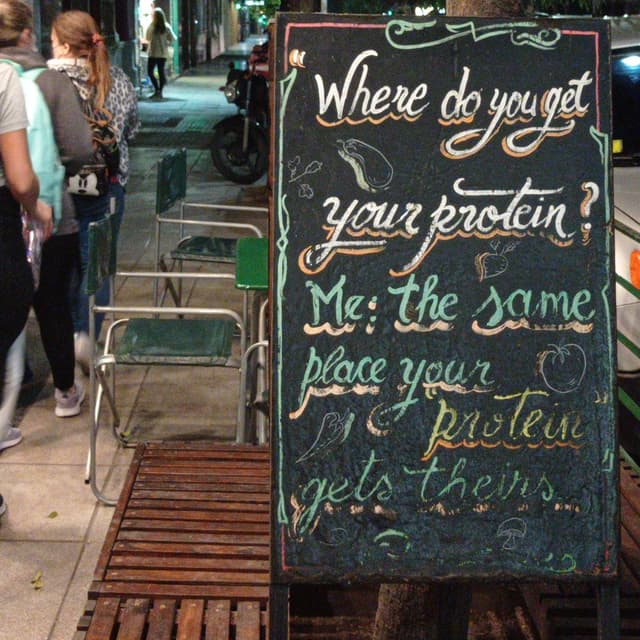 "Where do you get
your protein?
Me: the same
place your
protein
gets theirs."